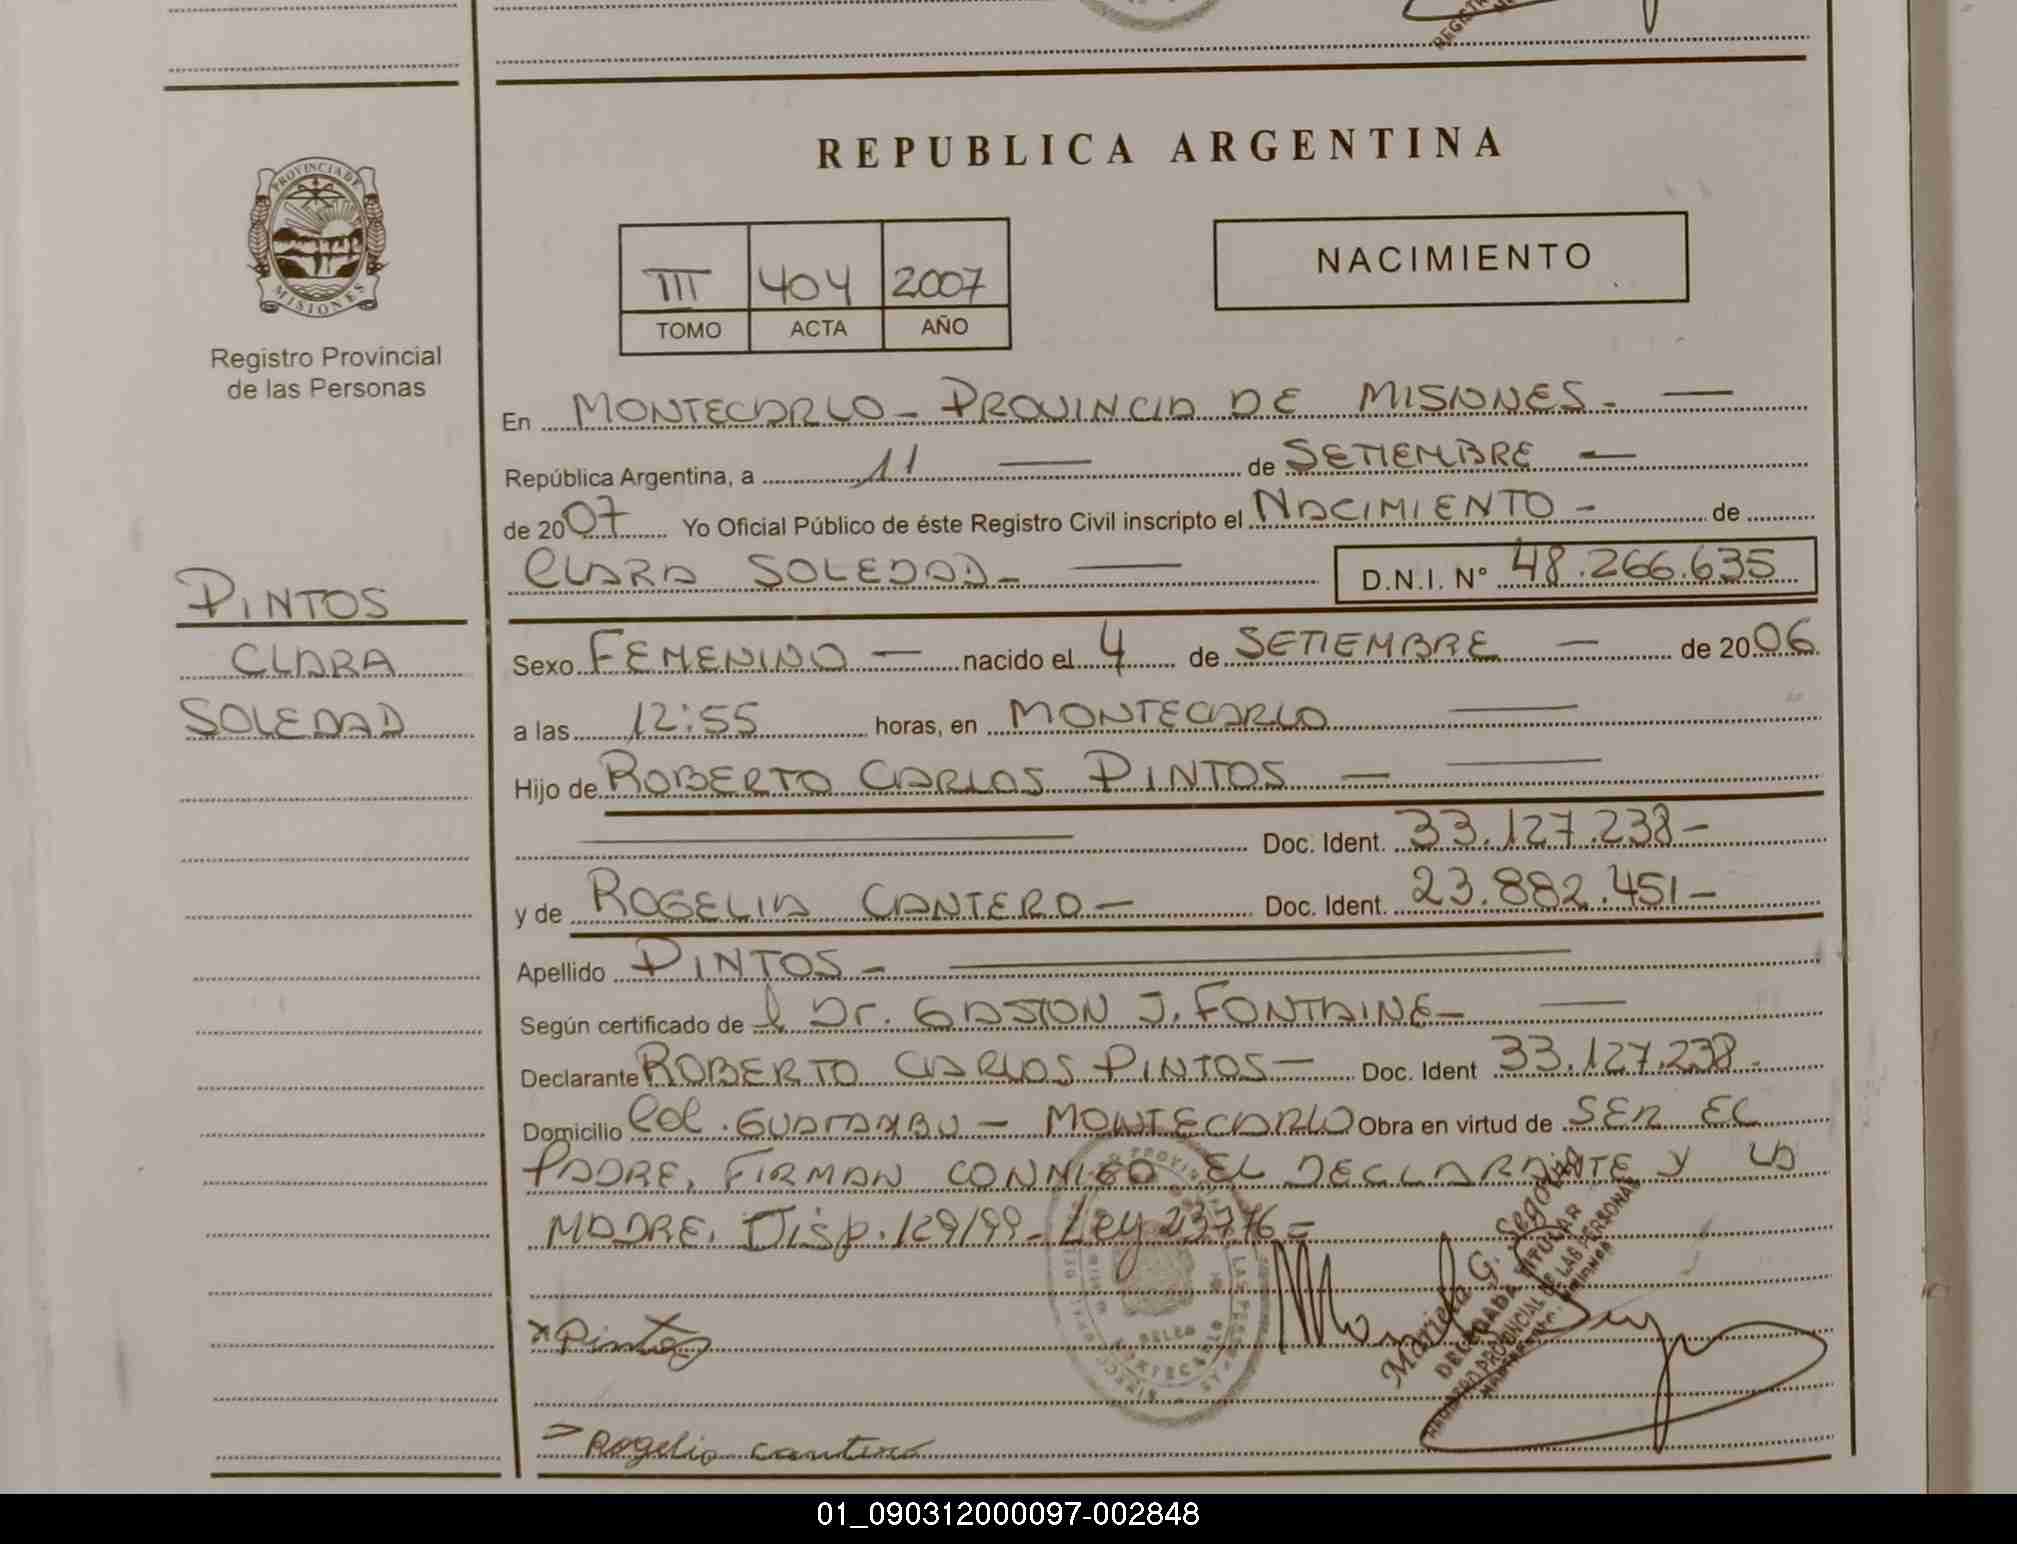 REPUBLICA ARGENTINA
PROVINCIA DE
MISIONES
Registro Provincial
de las Personas
NACIMIENTO
III 404 2007
TOMO ACTA AÑO
En MONTECARLO - PROVINCIA DE MISIONES. —
República Argentina, a 11 — de SETIEMBRE —
de 2007 Yo Oficial Público de éste Registro Civil inscripto el NACIMIENTO - de
CLARA SOLEDAD - — D.N.I. N° 48.266.635
PINTOS
CLARA
SOLEDAD
Sexo FEMENINO — nacido el 4 de SETIEMBRE — de 2006
a las 12:55 horas, en MONTECARLO —
Hijo de ROBERTO CARLOS PINTOS — —
— Doc. Ident. 33.127.238-
y de ROGELIA CANTERO — Doc. Ident. 23.882.451-
Apellido PINTOS - —
Según certificado de l Dr. GASTON J. FONTAINE - —
Declarante ROBERTO CARLOS PINTOS — Doc. Ident 33.127.238-
Domicilio Col. GUATAMBU - MONTECARLO Obra en virtud de SER EL
PADRE, FIRMAN CONMIGO EL DECLARANTE Y LA
MADRE. Disp. 129/99 - Ley 23776 =
x Pintos
Mariela G. Segovia
DELEGADA TITULAR
REGISTRO PROVINCIAL DE LAS PERSONAS
Rogelia cantero
01_090312000097-002848